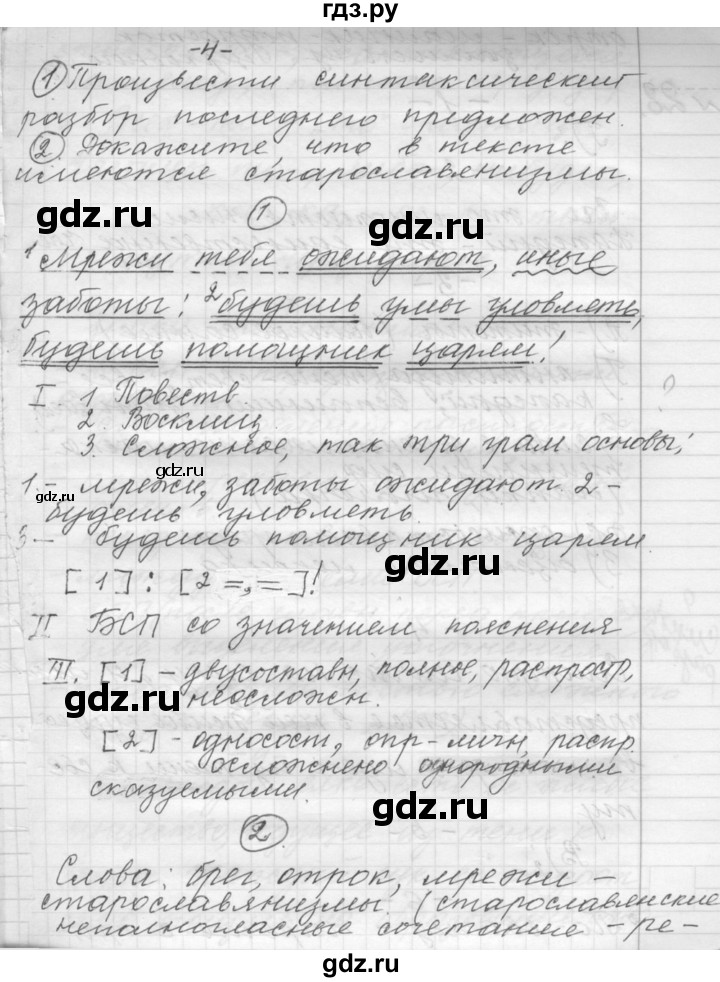 гдз.ру
-4-
① Произвести синтаксический
разбор последнего предложен.
② Докажите, что в тексте
имеются старославянизмы.
gdz.ru
gdz.ru
①
¹Мрежи тебя ожидают, иные
заботы: ²будешь умы уловлять,
будешь помощник царям!
I 1. Повеств.
2. Восклиц.
3. Сложное, так три грам. основы;
gdz.ru
gdz.ru
1.- мрежи, заботы ожидают 2-
будешь уловлять.
3- будешь помощник царям.
[1]: [2 =,=]!
gdz.ru
II БСП со значением пояснения
III. [1] - двусоставн, полное, распростр,
неосложен.
gdz.ru
[2] - односост, опр-личн, распр.
осложнено однородными
сказуемыми.
gdz.ru
②
Слова: брег, отрок, мрежи -
старославянизмы. (старославянские
неполногласные сочетание -ре-
gdz.ru
gdz.ru
gdz.ru